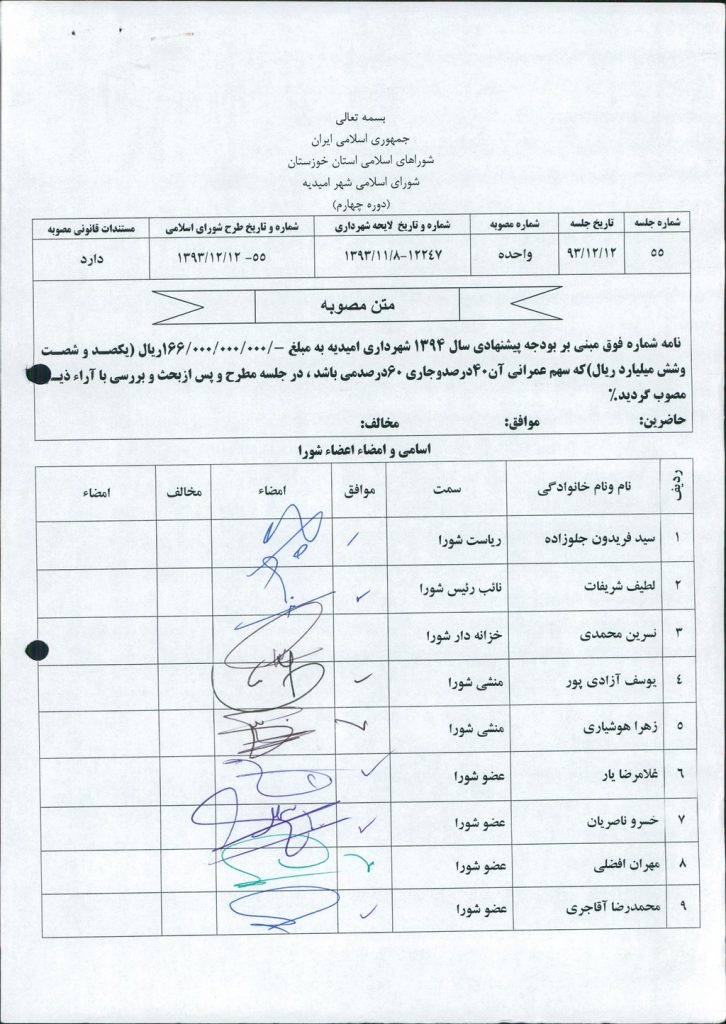 بسمه تعالی
جمهوری اسلامی ایران
شوراهای اسلامی استان خوزستان
شورای اسلامی شهر امیدیه
(دوره چهارم)
شماره جلسه تاریخ جلسه شماره مصوبه شماره و تاریخ لایحه شهرداری شماره و تاریخ طرح شورای اسلامی مستندات قانونی مصوبه
۵۵ ۹۳/۱۲/۱۲ واحده ۱۳۹۳/۱۱/۸-۱۲۲٤۷ ۵۵- ۱۳۹۳/۱۲/۱۲ دارد
متن مصوبه
نامه شماره فوق مبنی بر بودجه پیشنهادی سال ۱۳۹۴ شهرداری امیدیه به مبلغ -/۱۶۶/۰۰۰/۰۰۰/۰۰۰ریال (یکصد و شصت
وشش میلیارد ریال)که سهم عمرانی آن۴۰درصدوجاری ۶۰درصدمی باشد ، در جلسه مطرح و پس ازبحث و بررسی با آراء ذیـ
مصوب گردید.٪
حاضرین: موافق: مخالف:
اسامی و امضاء اعضاء شورا
ردیف نام ونام خانوادگی سمت موافق امضاء مخالف امضاء
۱ سید فریدون جلوزاده ریاست شورا
۲ لطیف شریفات نائب رئیس شورا
۳ نسرین محمدی خزانه دار شورا
٤ یوسف آزادی پور منشی شورا
۵ زهرا هوشیاری منشی شورا
٦ غلامرضا یار عضو شورا
۷ خسرو ناصریان عضو شورا
۸ مهران افضلی عضو شورا
۹ محمدرضا آقاجری عضو شورا